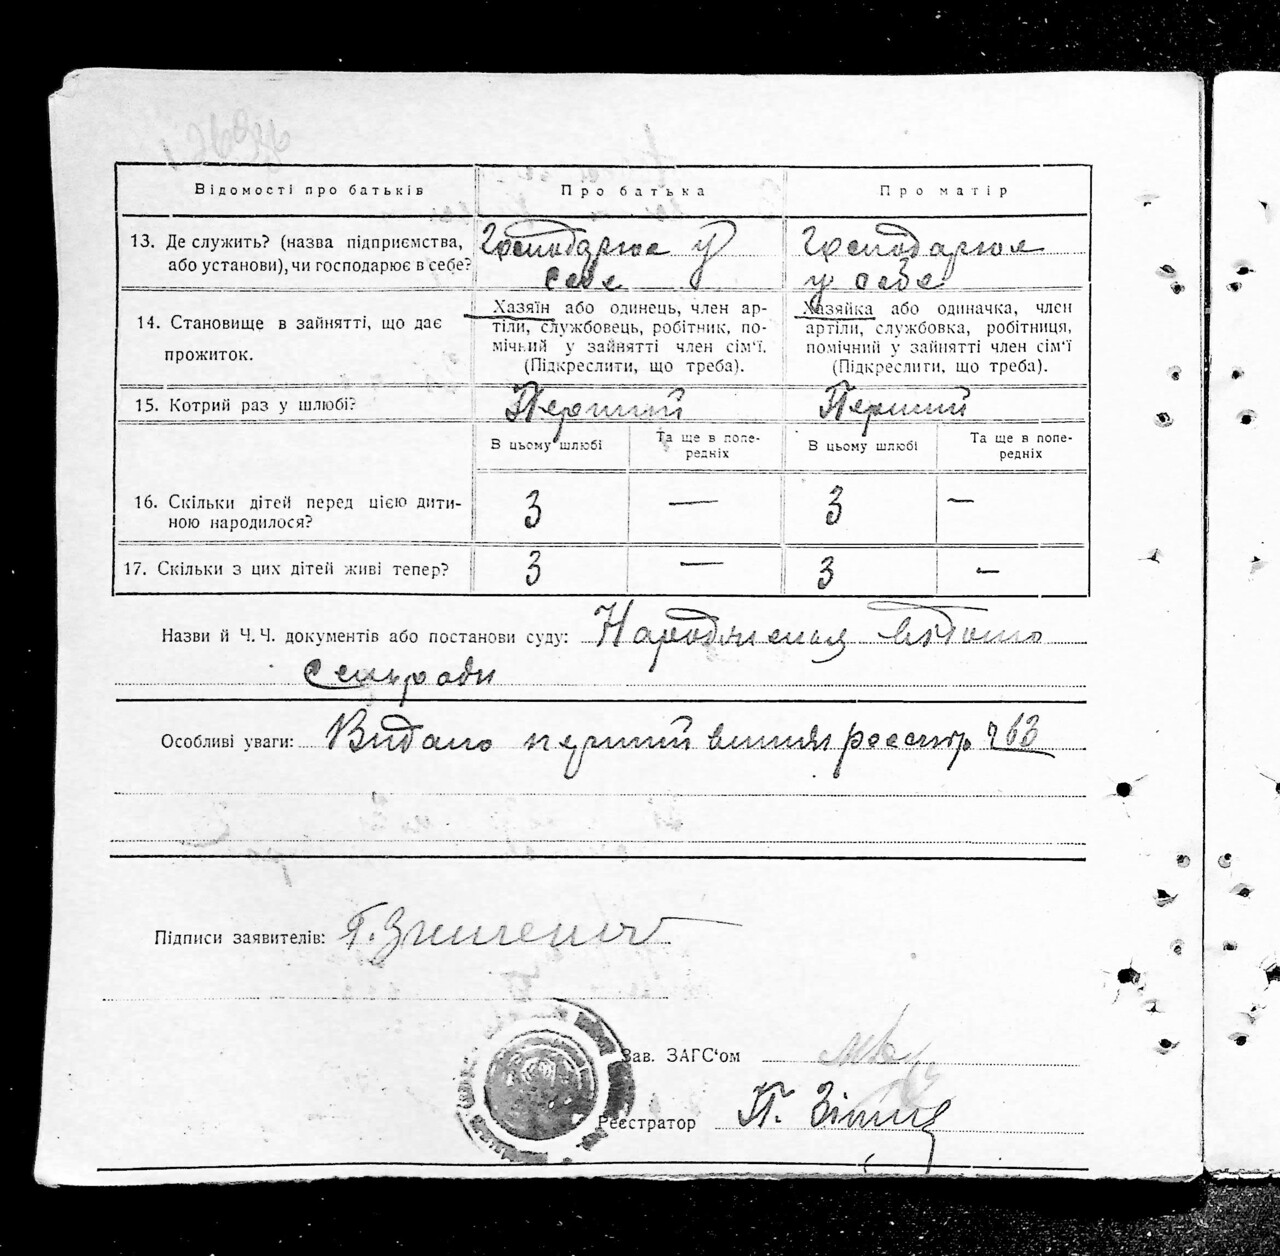 Відомості про батьків
Про батька
Про матір
13. Де служить? (назва підприємства,
або установи), чи господарює в себе?
Господарює у
себе
Господарює
у себе
14. Становище в зайнятті, що дає
прожиток.
Хазяїн або одинець, член ар-
тіли, службовець, робітник, по-
мічний у зайнятті член сім'ї.
(Підкреслити, що треба).
Хазяйка або одиначка, член
артіли, службовка, робітниця,
помічний у зайнятті член сім'ї
(Підкреслити, що треба).
15. Котрий раз у шлюбі?
Перший
Перший
В цьому шлюбі
Та ще в попе-
редніх
В цьому шлюбі
Та ще в попе-
редніх
16. Скільки дітей перед цією дити-
ною народилося?
3
—
3
—
17. Скільки з цих дітей живі тепер?
3
—
3
—
Назви й Ч.Ч. документів або постанови суду: Народження відомо
Сельради
Особливі уваги: Видано перший реєстр 763
Підписи заявителів:
Зав. ЗАГС'ом
Реєстратор